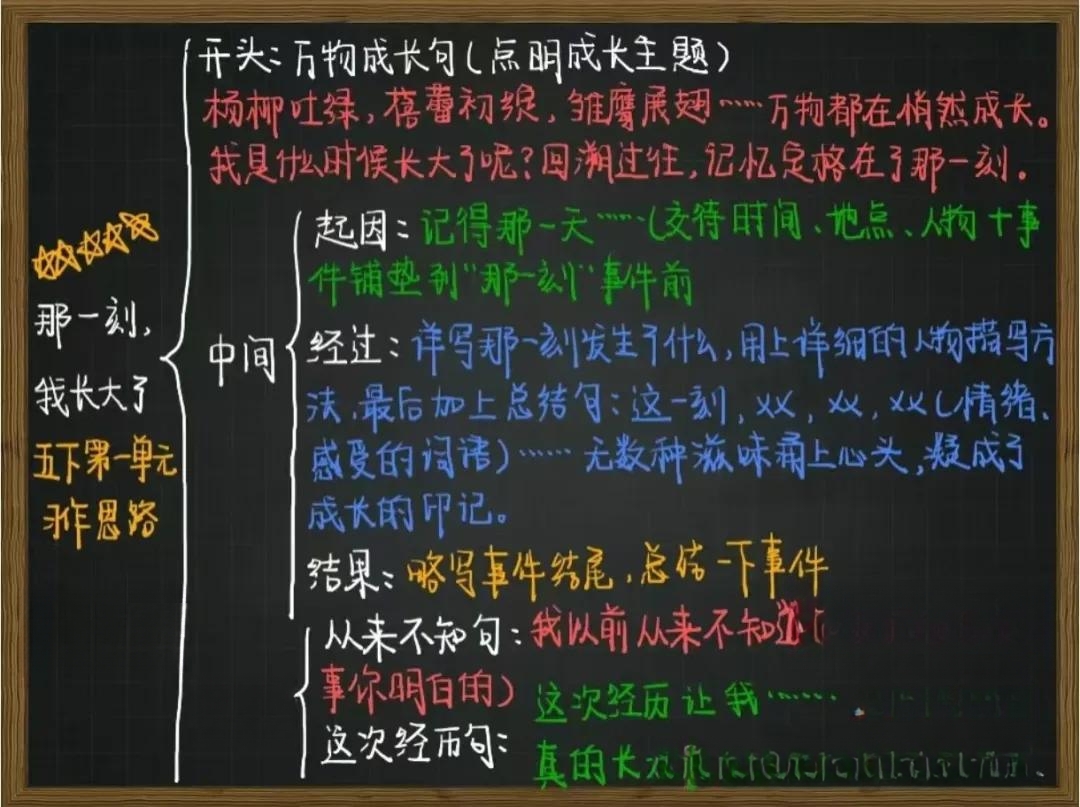 开头：万物成长句（点明成长主题）
杨柳吐绿，蓓蕾初绽，雏鹰展翅……万物都在悄然成长。
我是什么时候长大了呢？回溯过往，记忆定格在了那一刻。
☆☆☆☆☆
那一刻，
我长大了
五下第一单元
习作思路
中间
起因：记得那一天……（交待时间、地点、人物＋事
件铺垫到“那一刻”事件前
经过：详写那一刻发生了什么，用上详细的人物描写方
法，最后加上总结句：这一刻，xx，xx，xx（情绪、
感受的词语）……无数种滋味涌上心头，凝成了
成长的印记。
结果：略写事件结尾，总结一下事件
从来不知句：我以前从来不知道
事你明白的）
这次经历让我……
这次经历句：
真的长大